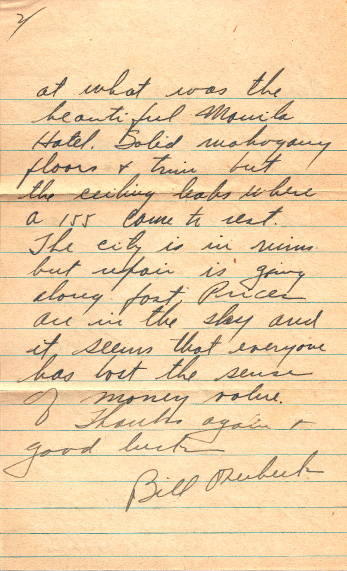 2/
at what was the
beautiful Manila
Hotel. Solid mahogany
floors & trim but
the ceiling leaks where
a 155 came to rest.
The city is in ruins
but repair is going
along fast. Prices
are in the sky and
it seems that everyone
has lost the sense
of money value.
Thanks again &
good luck
Bill